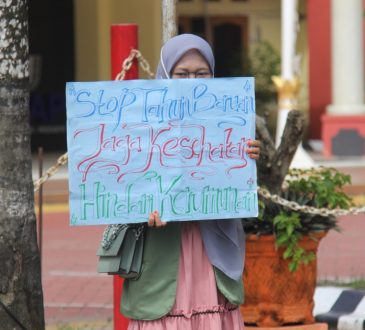 Stop Tahun Baruan
Jaga Kesehatan
Hindari Kerumunan